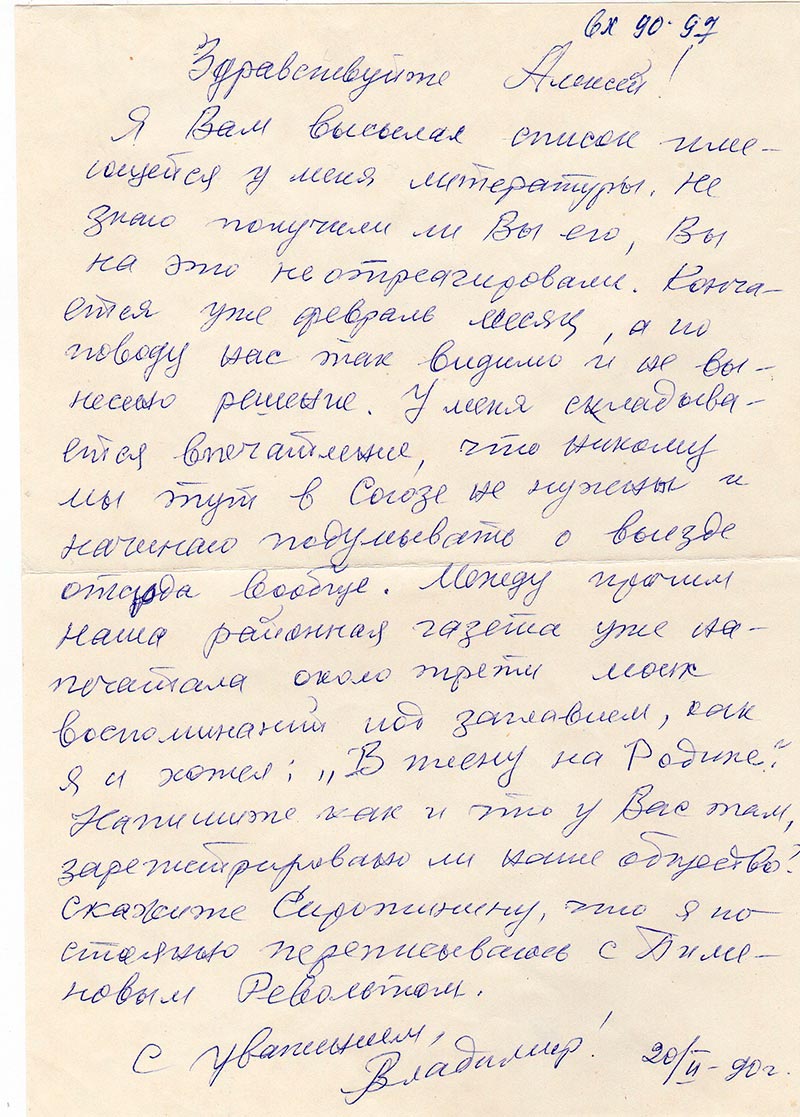 вх 90-97
Здравствуйте Алексей!
Я Вам высылал список име-
ющейся у меня литературы. Не
знаю получили ли Вы его, Вы
на это не отреагировали. Конча-
ется уже февраль месяц, а по
поводу нас так видимо и не вы-
несено решение. У меня складыва-
ется впечатление, что никому
мы тут в Союзе не нужны и
начинаю подумывать о выезде
отсюда вообще. Между прочим
наша районная газета уже на-
печатала около трети моих
воспоминаний под заглавием, как
я и хотел: „В плену на Родине“.
Напишите как и что у Вас там,
зарегистрировано ли наше общество?
Скажите Сиротинину, что я по
стоянно переписываюсь с Пиме-
новым Револьтом.
С уважением,
Владимир!
20/II-90г.